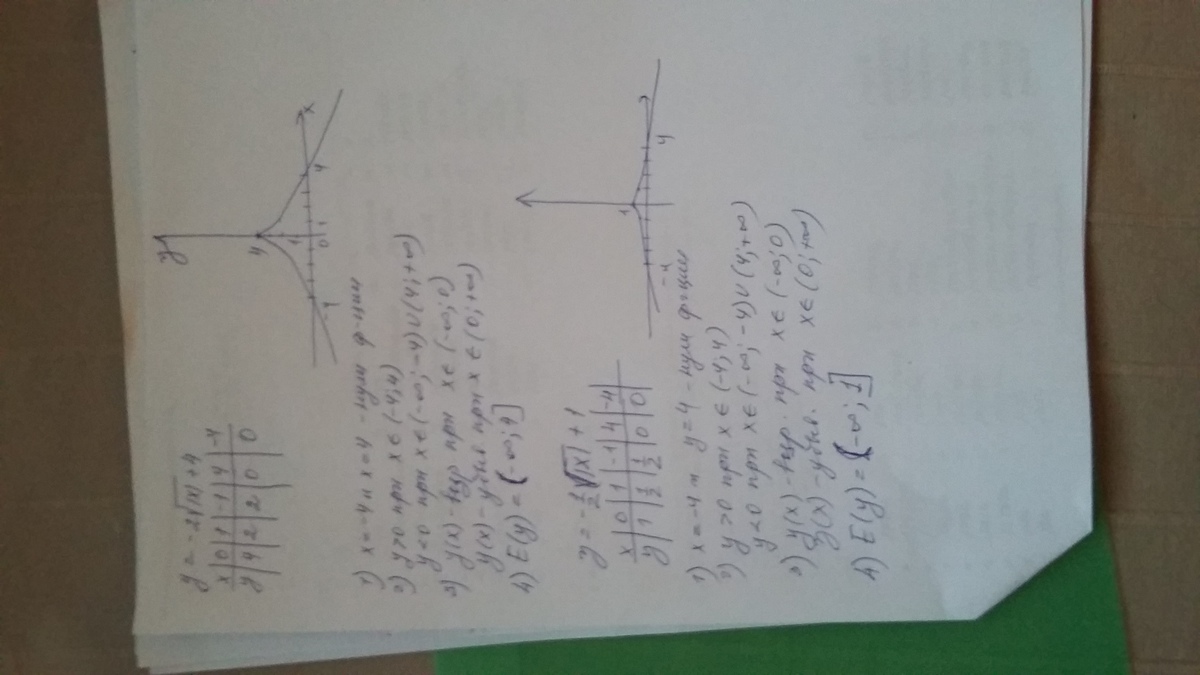 y = -2√|x| + 4
x | 0 | 1 | -1 | 4 | -4
y | 4 | 2 | 2 | 0 | 0
y
x
4
1
0
1
4
-4
1) x = -4 и x = 4 - нули ф-ции
2) y > 0 при x ∈ (-4; 4)
y < 0 при x ∈ (-∞; -4) ∪ (4; +∞)
3) y(x) - возр при x ∈ (-∞; 0)
y(x) - убыв при x ∈ (0; +∞)
4) E(y) = (-∞; 4]
y = -1/2 √|x| + 1
x | 0 | 1 | -1 | 4 | -4
y | 1 | 1/2 | 1/2 | 0 | 0
1
-4
4
1) x = -4 и y = 4 - нули ф-ции
2) y > 0 при x ∈ (-4; 4)
y < 0 при x ∈ (-∞; -4) ∪ (4; +∞)
3) y(x) - возр. при x ∈ (-∞; 0)
y(x) - убыв. при x ∈ (0; +∞)
4) E(y) = (-∞; 1]